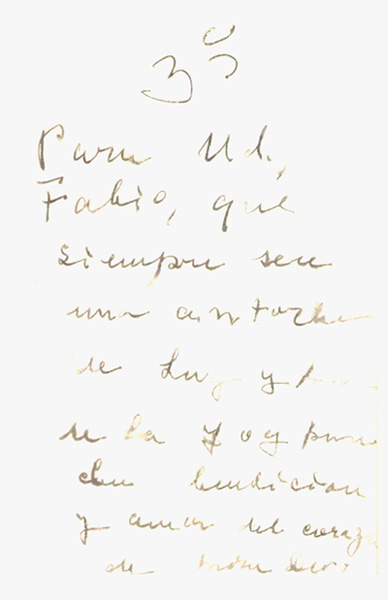 3º
Para Ud.,
Fabio, que
siempre sea
una antorcha
de Luz y
de la Yo y para
bendicion
y amor del coraz
de